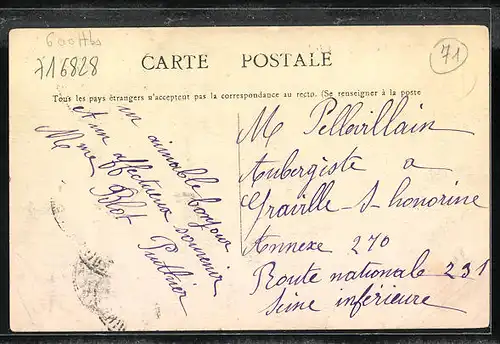 600 Hbs
716828
71
CARTE POSTALE
Tous les pays étrangers n'acceptent pas la correspondance au recto. (Se renseigner à la poste
un aimable bonjour
et un affectueux souvenir
Mme Blot Puthier
M Pellarllain
Aubergiste a
Graville-S honorine
Annexe 270
Route nationale 231
Seine inférieure